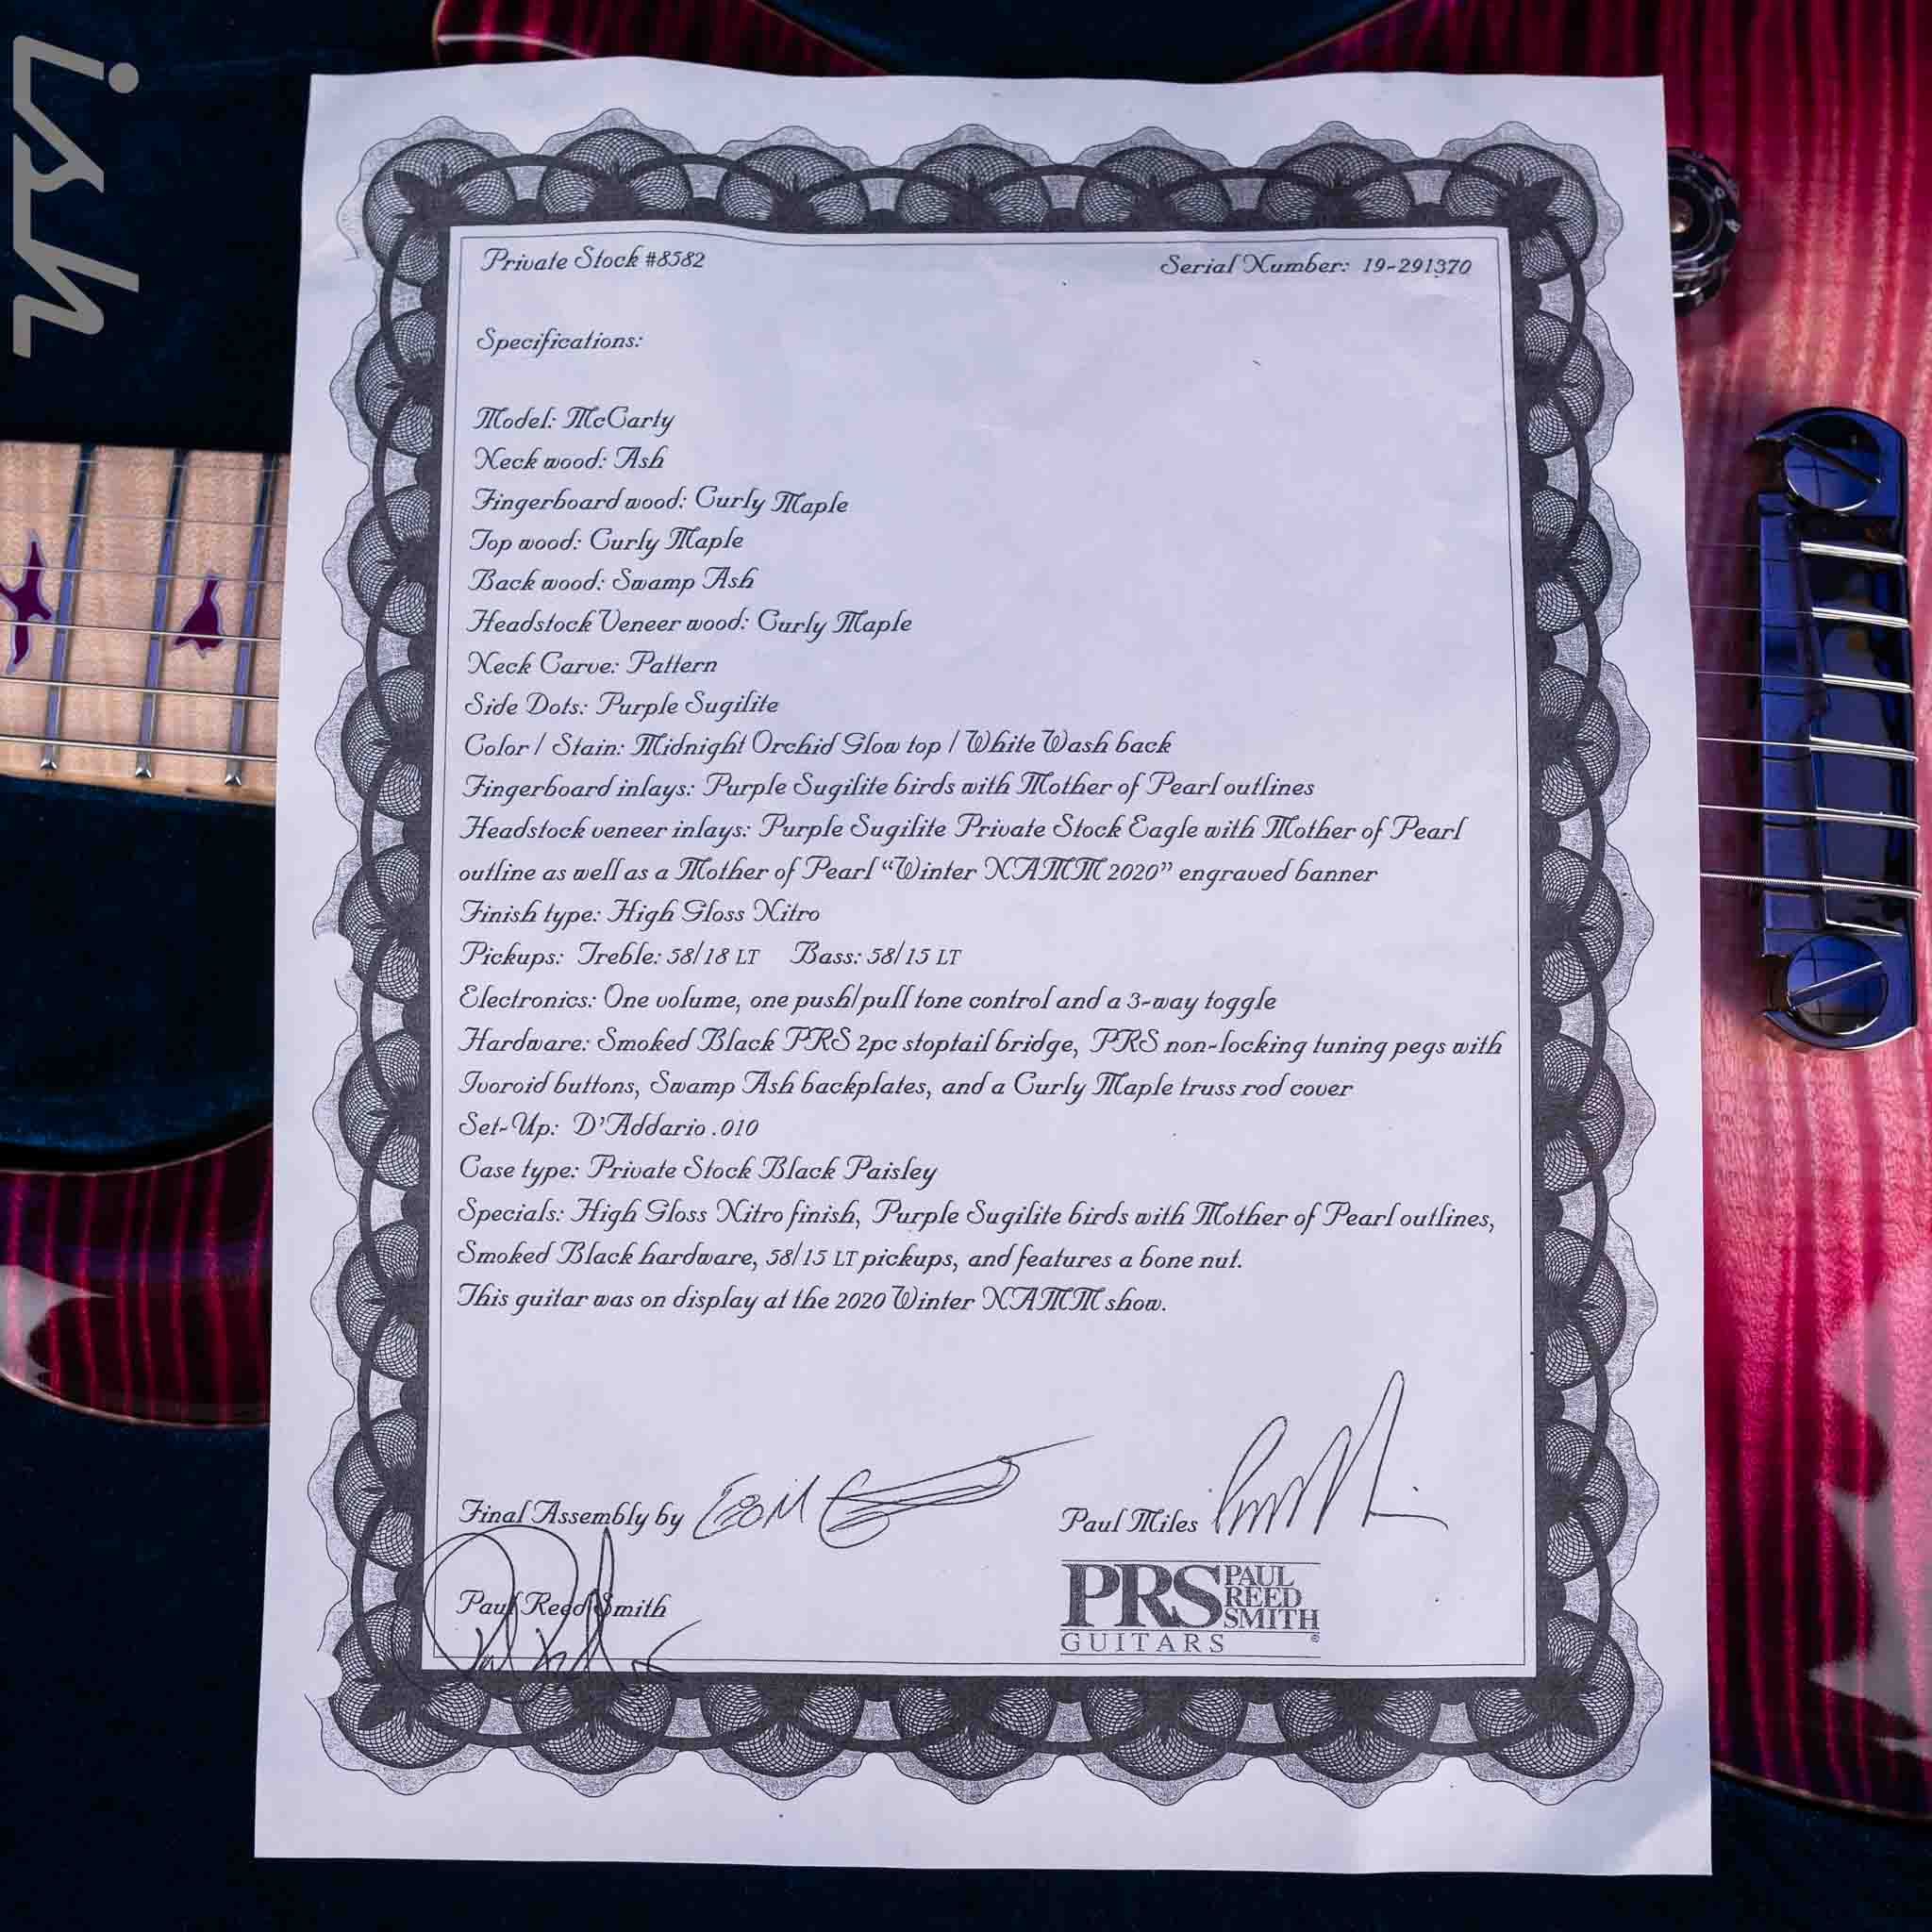 ish
Private Stock #8582
Serial Number: 19-291370
Specifications:
Model: McCarty
Neck wood: Ash
Fingerboard wood: Curly Maple
Top wood: Curly Maple
Back wood: Swamp Ash
Headstock Veneer wood: Curly Maple
Neck Carve: Pattern
Side Dots: Purple Sugilite
Color / Stain: Midnight Orchid Glow top / White Wash back
Fingerboard inlays: Purple Sugilite birds with Mother of Pearl outlines
Headstock veneer inlays: Purple Sugilite Private Stock Eagle with Mother of Pearl
outline as well as a Mother of Pearl “Winter NAMM 2020” engraved banner
Finish type: High Gloss Nitro
Pickups: Treble: 58/18 LT Bass: 58/15 LT
Electronics: One volume, one push/pull tone control and a 3-way toggle
Hardware: Smoked Black PRS 2pc stoptail bridge, PRS non-locking tuning pegs with
Ivoroid buttons, Swamp Ash backplates, and a Curly Maple truss rod cover
Set-Up: D'Addario .010
Case type: Private Stock Black Paisley
Specials: High Gloss Nitro finish, Purple Sugilite birds with Mother of Pearl outlines,
Smoked Black hardware, 58/15 LT pickups, and features a bone nut.
This guitar was on display at the 2020 Winter NAMM show.
Final Assembly by
Paul Miles
Paul Reed Smith
PRS PAUL
REED
SMITH
GUITARS